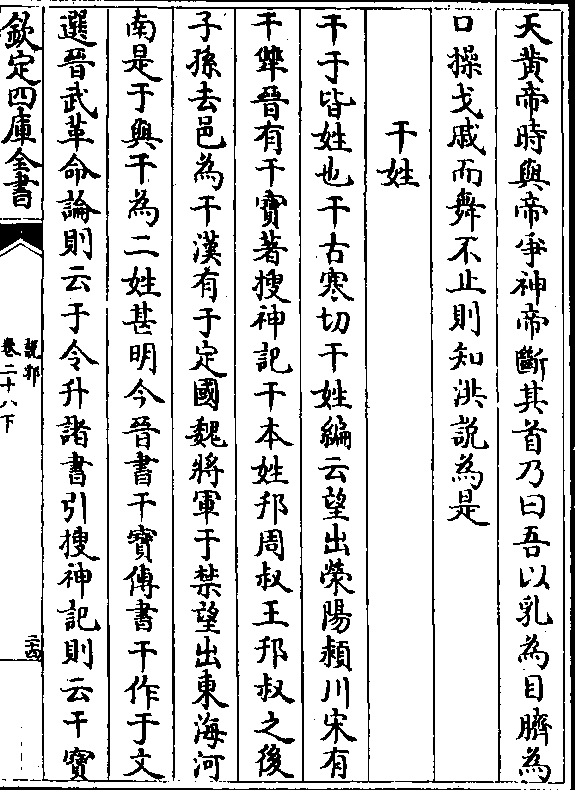 天黄帝時與帝爭神帝斷其首乃曰吾以乳為目臍為
口操戈戚而舞不止則知洪説為是
干姓
干于皆姓也干古寒切干姓編云望出滎陽潁川宋有
干犨晉有干寶著搜神記干本姓邘周叔王邘叔之後
子孫去邑為干漢有于定國魏將軍于禁望出東海河
南是于與干為二姓甚明今晉書干寶傳書干作于文
選晉武革命論則云于令升諸書引搜神記則云干寶
欽定四庫全書
說郛
卷二十八下
三四